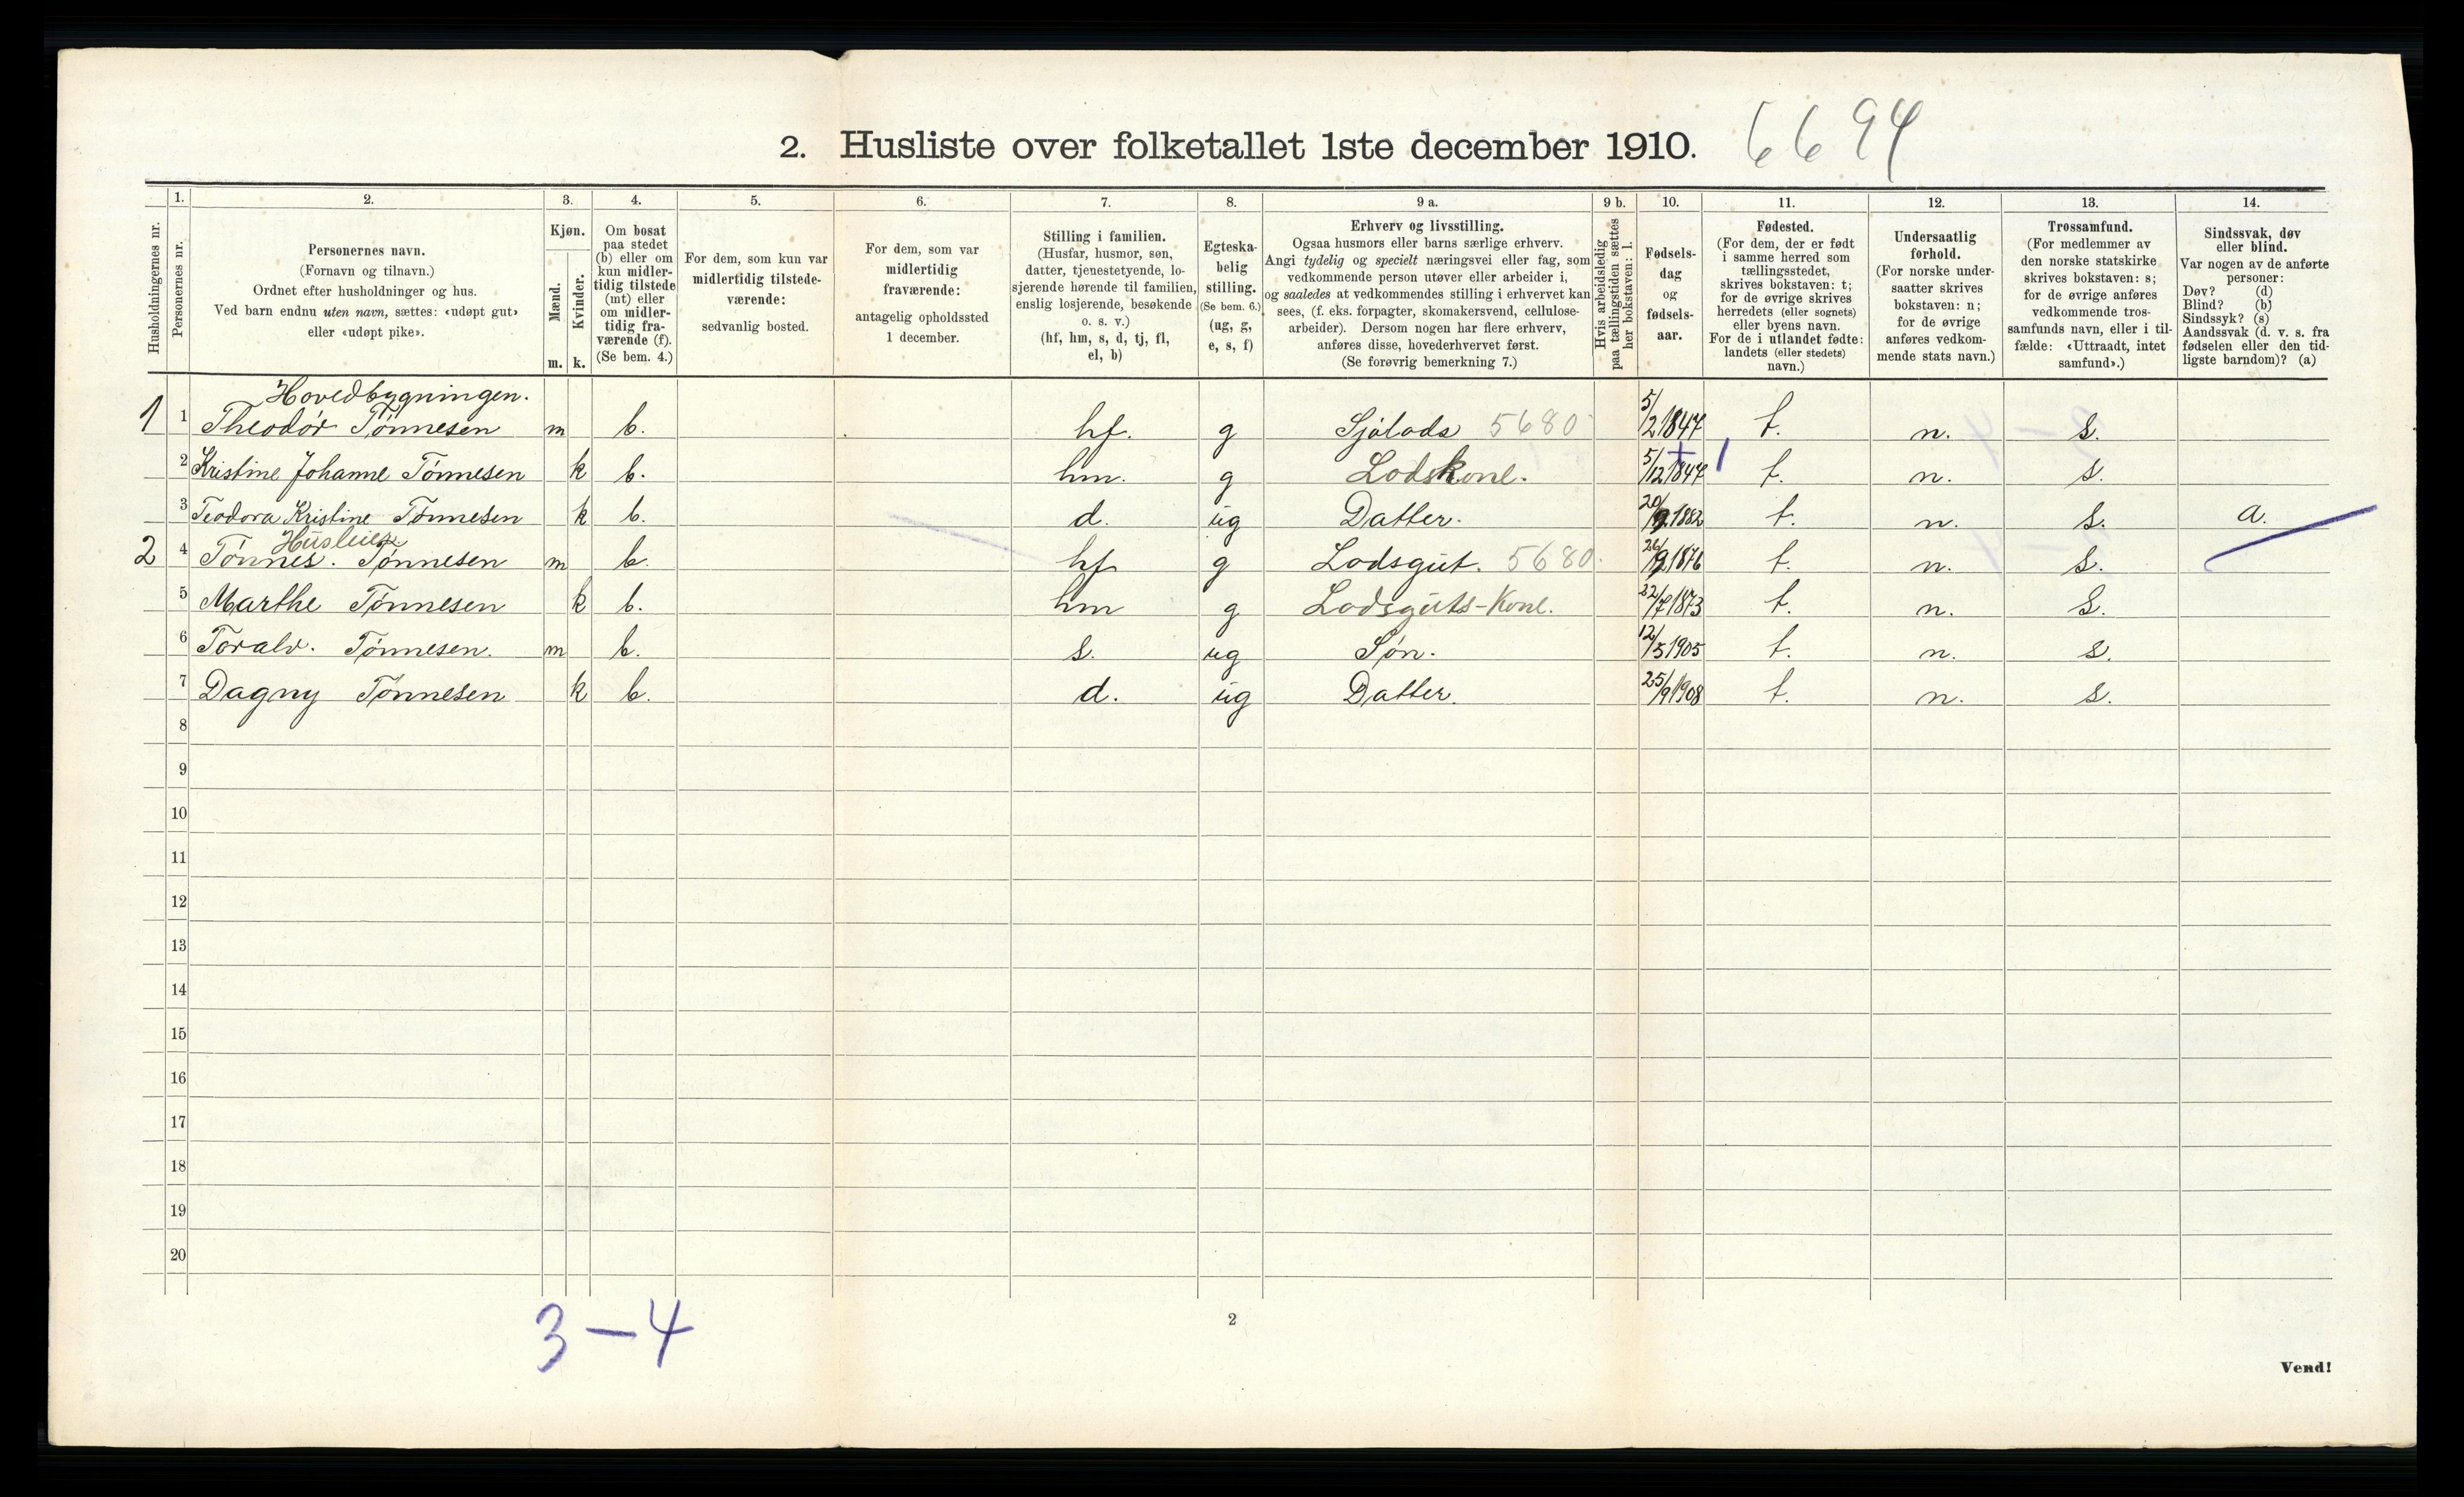 2. Husliste over folketallet 1ste december 1910. 6694
Husholdningernes nr.
1.
Personernes nr.
2.
Personernes navn.
(Fornavn og tilnavn.)
Ordnet efter husholdninger og hus.
Ved barn endnu uten navn, sættes: «udøpt gut»
eller «udøpt pike».
3.
Kjøn.
Mænd.
Kvinder.
m. k.
4.
Om bosat
paa stedet
(b) eller om
kun midler-
tidig tilstede
(mt) eller
om midler-
tidig fra-
værende (f).
(Se bem. 4.)
5.
For dem, som kun var
midlertidig tilstede-
værende:
sedvanlig bosted.
6.
For dem, som var
midlertidig
fraværende:
antagelig opholdssted
1 december.
7.
Stilling i familien.
(Husfar, husmor, søn,
datter, tjenestetyende, lo-
sjerende hørende til familien,
enslig losjerende, besøkende
o. s. v.)
(hf, hm, s, d, tj, fl,
el, b)
8.
Egteska-
belig
stilling.
(Se bem. 6.)
(ug, g,
e, s, f)
9 a.
Erhverv og livsstilling.
Ogsaa husmors eller barns særlige erhverv.
Angi tydelig og specielt næringsvei eller fag, som
vedkommende person utøver eller arbeider i,
og saaledes at vedkommendes stilling i erhvervet kan
sees, (f. eks. forpagter, skomakersvend, cellulose-
arbeider). Dersom nogen har flere erhverv,
anføres disse, hovederhvervet først.
(Se forøvrig bemerkning 7.)
9 b.
Hvis arbeidsledig
paa tællingstiden sættes
her bokstaven: l.
10.
Fødsels-
dag
og
fødsels-
aar.
11.
Fødested.
(For dem, der er født
i samme herred som
tællingsstedet,
skrives bokstaven: t;
for de øvrige skrives
herredets (eller sognets)
eller byens navn.
For de i utlandet fødte:
landets (eller stedets)
navn.)
12.
Undersaatlig
forhold.
(For norske under-
saatter skrives
bokstaven: n;
for de øvrige
anføres vedkom-
mende stats navn.)
13.
Trossamfund.
(For medlemmer av
den norske statskirke
skrives bokstaven: s;
for de øvrige anføres
vedkommende tros-
samfunds navn, eller i til-
fælde: «Uttraadt, intet
samfund».)
14.
Sindssvak, døv
eller blind.
Var nogen av de anførte
personer:
Døv? (d)
Blind? (b)
Sindssyk? (s)
Aandssvak (d. v. s. fra
fødselen eller den tid-
ligste barndom)? (a)
Hovedbygningen.
1 1 Theodór Tønnesen m b. hf. g Sjólods 5680 5/2 1847 t. n. s.
2 Kristine Johanne Tónnesen k b. hm. g Lodskone. 5/12 1847 t. n. s.
3 Teodora Kristine Tønnesen k b. d. ug Datter. 1882 t. n. s. a.
Husleier
2 4 Tønnes. Tønnesen m b. hf g Lodsgut. 5680. 1876 t. n. s.
5 Marthe Tønnesen k b. hm g Lodsguts-Kone. 22/7 1873 t. n. s.
6 Toralv. Tønnesen. m b. s. ug Søn. 12/5 1905 t. n. s.
7 Dagny Tønnesen k b. d. ug Datter. 25/9 1908 t. n. s.
8
9
10
11
12
13
14
15
16
17
18
19
20
3-4
2
Vend!